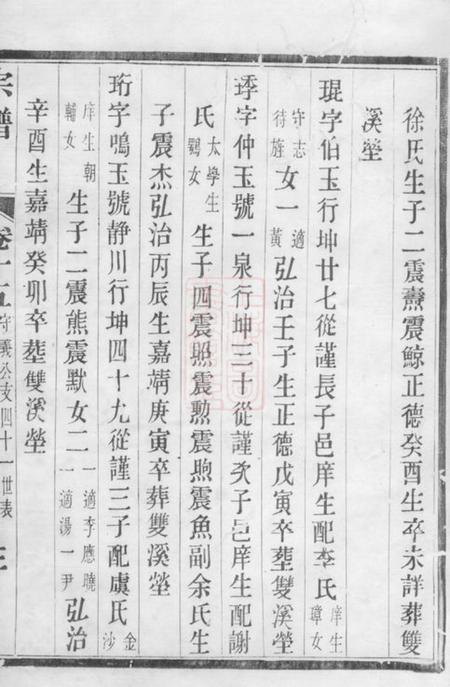 徐氏生子二震燾震鯨正德癸酉生卒未詳葬雙
溪塋
琨字伯玉行坤廿七從謹長子邑庠生配李氏庠生
璋女
守志
待旌女一適
黃弘治壬子生正德戊寅卒塟雙溪塋
琇字仲玉號一泉行坤三十從謹次子邑庠生配謝
氏太學生
鸚女生子四震照震勲震煦震魚副余氏生
子震杰弘治丙辰生嘉靖庚寅卒葬雙溪塋
珩字鳴玉號静川行坤四十尤從謹三子配虞氏金
沙
庠生朝
輔女生子二震熊震默女二一適李應曉
一適湯一尹弘治
辛酉生嘉靖癸卯卒塟雙溪塋
宗譜 卷十五 守義公支四十一世表